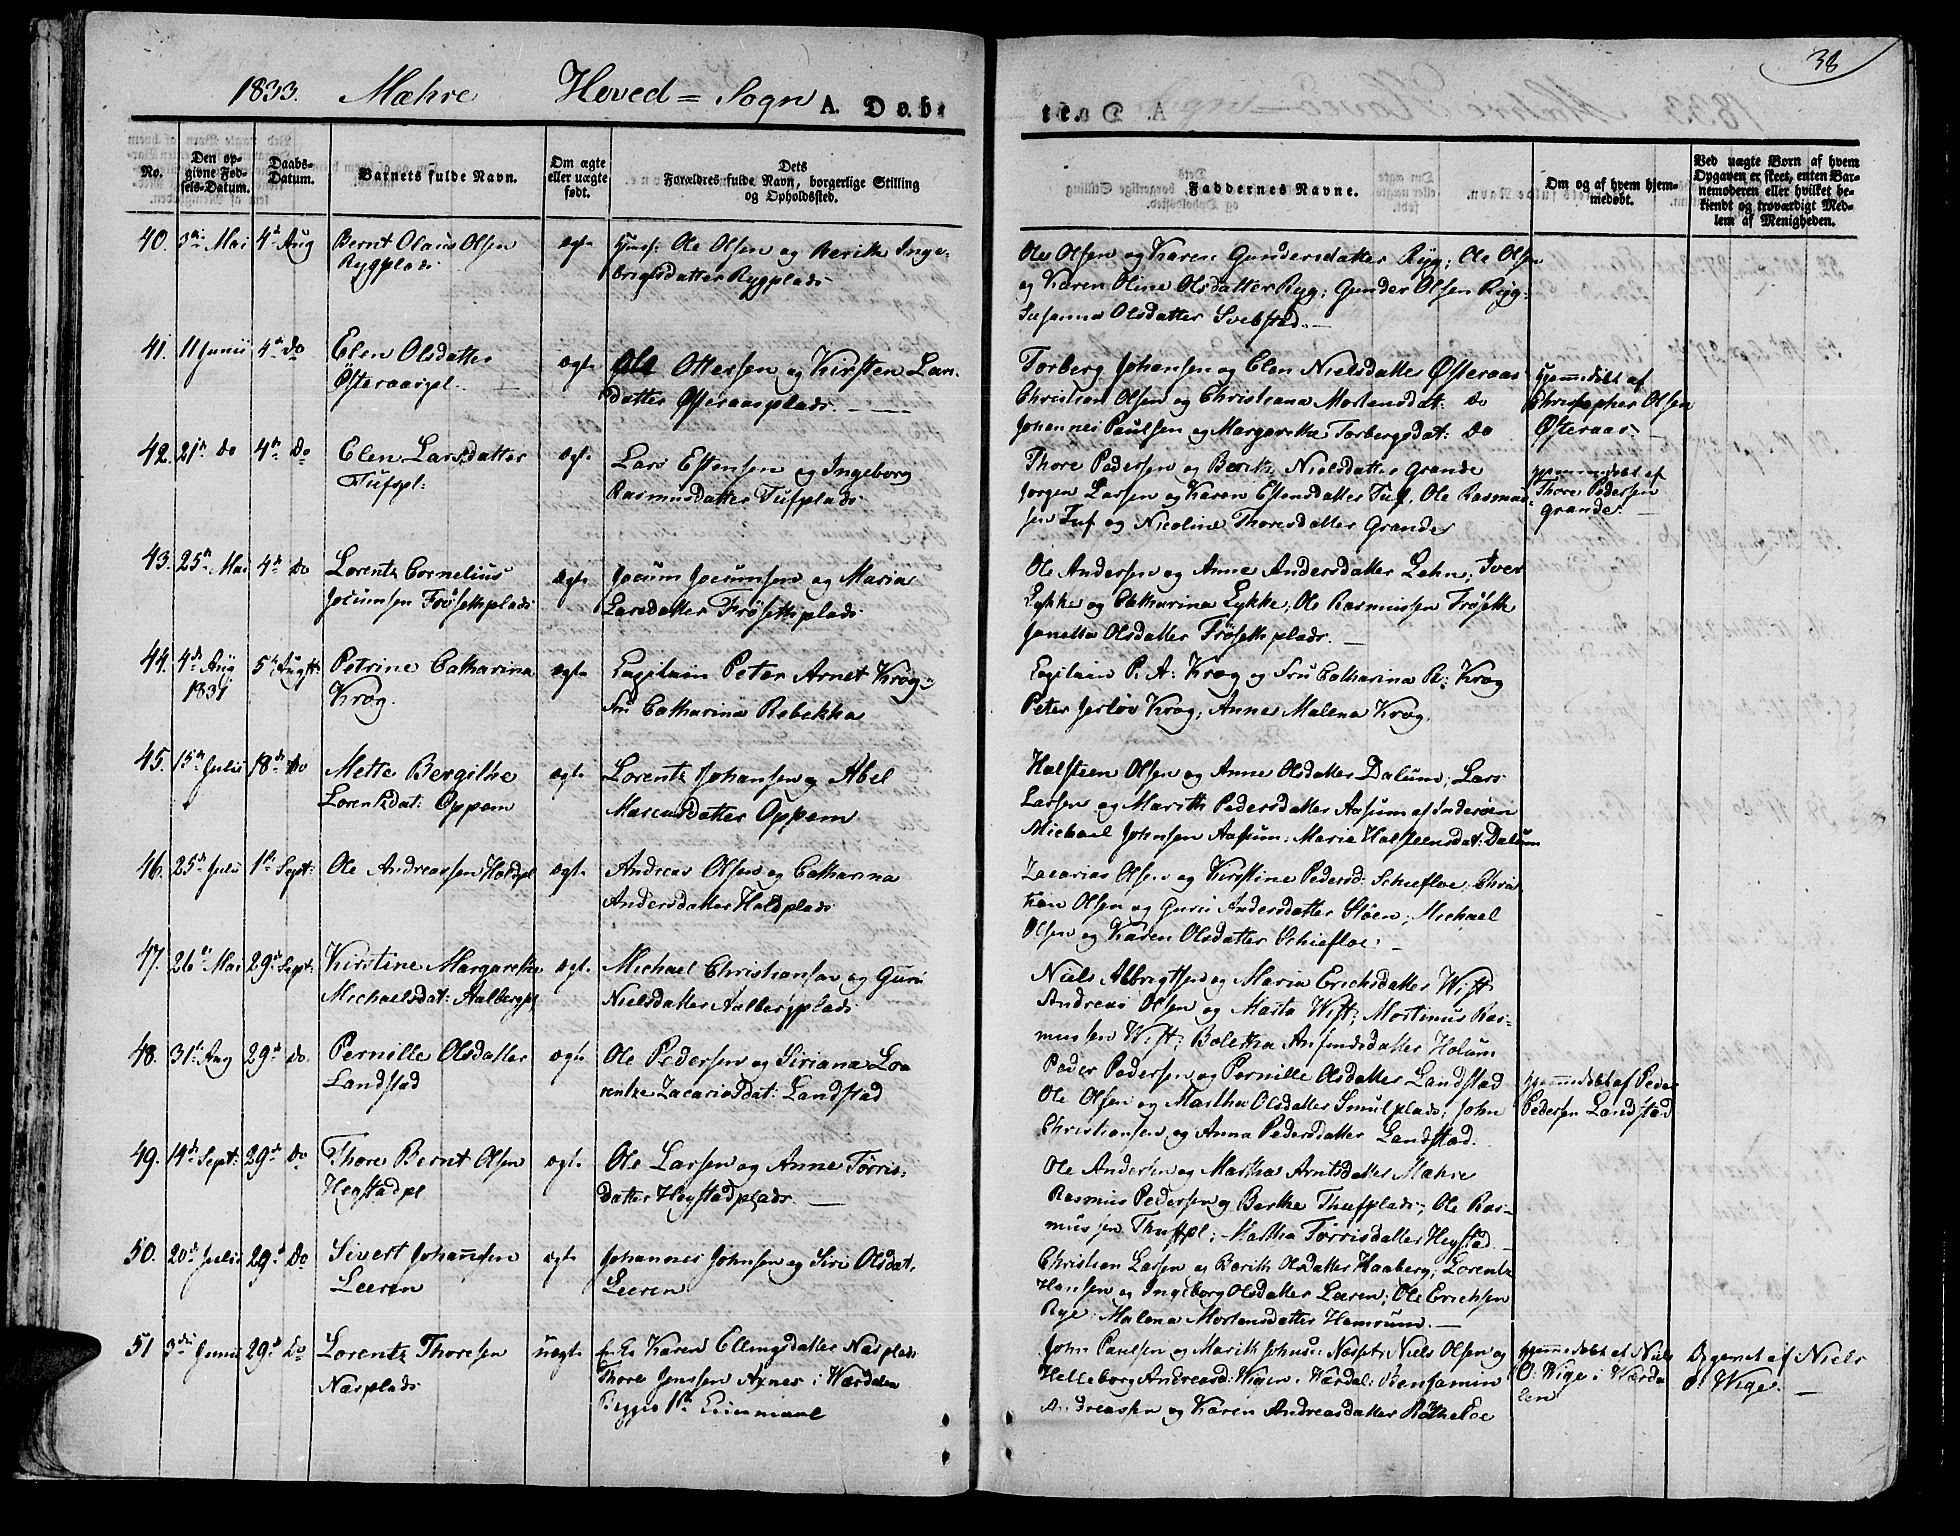 1833. Mæhre Hoved = Sogn A. Døbt
38
No.
Den op-
givne Fød-
sels-Datum.
Daabs-
Datum.
Barnets fulde Navn.
Om ægte
eller uægte
født.
Dets
Forældres fulde Navn, borgerlige Stilling
og Opholdssted.
Faddernes Navne.
Om og af hvem hjem-
medøbt.
Ved uægte Børn af hvem
Opgaven er skeet, enten Bar-
nemoderen eller hvilket be-
kiendt og troværdigt Med-
lem af Menigheden.
40. 3die Mai 4de Aug Bernt Olaus Olsen
Rygplads
ægte
Huusf: Ole Olsen og Berith Inge-
brigtsdatter Rygplads
Ole Olsen og Karen Gundersdatter Ryg; Ole Olsen
og Karen Oline Olsdatter Ryg; Gunder Olsen Ryg;
Susanna Olsdatter Svebstad.
41. 11 Junii 4de Do Elen Olsdatter
Østeraaspl.
ægte
Ole Ottersen og Kirsten Lars-
datter Østeraasplads.
Torberg Johansen og Elen Nielsdatter Østeraas
Christian Olsen og Christiana Mortensdat: Do
Johannes Paulsen og Margarethe Torbergsdat: Do
Hjemmedøbt af
Christopher Olsen
Østeraas.
42. 21de Do 4de Do Elen Larsdatter
Tufspl:
ægte
Lars Estensen og Ingeborg
Rasmusdatter Tufplads
Thore Pedersen og Berith Nielsdatter Grande
Jørgen Larsen og Karen Estensdatter Tuf, Ole Rasmus-
sen Tuf og Nicoline Thoresdatter Grande
Hjemmedøbt af
Thore Pedersen
Grande.
43. 25de Mai 4de Do Lorentz Cornelius
Jocumsen Frøsethplads
ægte
Jocum Jocumsen og Maria
Larsdatter Frøsethplads
Ole Andersen og Anne Andersdatter Lehn; Iver
Lykke og Catharina Lykke; Ole Rasmussen Frøseth
Janetta Olsdatter Frøsethplads.
44. 4de Aug
1831
5te Augst: Petrine Catharina
Krog.
ægte
Capitain Peter Arnet Krog
Fru Catharina Rebekka
Capitain P. A: Krog og Fru Catharina R: Krog
Peter Jerløv Krog; Anne Malena Krog.
45. 15de Julii 18de Do Mette Bergithe
Lorentzdat: Oppem
ægte
Lorentz Johansen og Abel
Marcusdatter Oppem
Halsteen Olsen og Anne Olsdatter Dalum; Lars
Larsen og Marith Pedersdatter Aasum af Inderøen
Michael Johnsen Aasum; Maria Halsteensdat: Dalum
46. 25de Juli 1ste Sept: Ole Andreassen Holdpl
ægte
Andreas Olsen og Catharina
Andersdatter Holdplads
Zacarias Olsen og Kirstine Pedersd: Schiefloe; Chris-
tian Olsen og Guru Andersdatter Støen; Michael
Olsen og Karen Olsdatter Schiefloe.
47. 26de Mai 29de Sept: Kirstine Margarethe
Michaelsdat: Aalbergpl
ægte
Michael Christiansen og Guru
Nielsdatter Aalbergplads
Niels Albrigtsen og Maria Erichsdatter Wist
Andreas Olsen og Marta Wist; Mortinus Ras-
mussen Wist; Boletha Anfindsdatter Holum
48. 31te Aug 29de Do. Pernille Olsdatter
Landstad
ægte
Ole Pedersen og Siriana Lo-
rentze Zacariasdat: Landstad
Peder Pedersen og Pernille Olsdatter Landstad
Ole Olsen og Martha Olsdatter Smulplads; John
Christiansen og Anna Pedersdatter Landstad.
Hjemmedøbt af Peder
Pedersen Landstad
49. 14de Sept: 29de Do Thore Bernt Olsen
Hegstadpl
ægte
Ole Larsen og Anne Torris-
datter Hegstadplads
Ole Andersen og Martha Arntsdatter Mæhre
Rasmus Pedersen og Berthe Thufplads; Ole Ras-
mussen Thufpl; Martha Torrisdatter Hegstad
50. 20de Julii 29de Do Sivert Johannesen
Leeren
ægte
Johannes Johnsen og Siri Olsdat.
Leeren
Christian Larsen og Berith Olsdatter Haaberg; Lorentz
Hansen og Ingeborg Olsdatter Leeren; Ole Erichsen
Rye; Malena Mortensdatter Hamrum.
51 3die Junii 29de Do Lorentz Thoresen
Næsplads
uægte
Karen Ellingsdatter Næsplads
Thore Jenssen Axnes i Værdalen
Begges 1ste Leiermaal
John Paulsen og Marith Johnsd: Næsset; Niels Olsen og
Helleborg Andreasd: Wigen i Værdal; Benjamin
Andreassen og Karen Andreasdatter
Hjemmedøbt af Niels
O: Wige i Værda-
len
Opgivet af Niels
O: Wige.